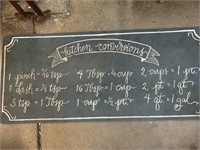 kitchen conversions
1 pinch = ⅛ tsp 4 Tbsp = ¼ cup 2 cups = 1 pt.
1 dash = ⅛ tsp 16 Tbsp = 1 cup 2 pt = 1 qt
3 tsp = 1 Tbsp 1 cup = ½ pt. 4 qt = 1 gal